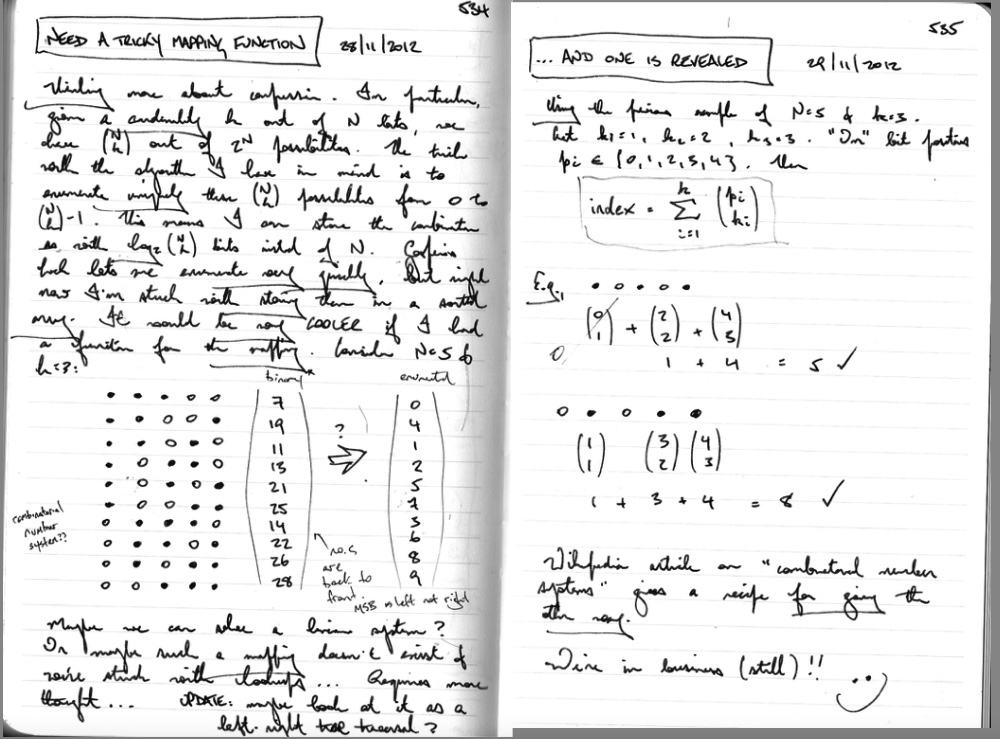 534
NEED A TRICKY MAPPING FUNCTION 28/11/2012
Thinking more about compression. In particular,
given a assembly k out of N bits, we
have (N k) out of 2^N possibilities. The trick
with the algorithm I have in mind is to
enumerate uniquely these (N k) possibilities from 0 to
(N k)-1. This means I can store the combination
as with log2(N k) bits instead of N.
lets me enumerate very quickly, but right
now I'm stuck with storing them in a sorted
array. It would be way COOLER if I had
a function for the mapping. Consider N=5 &
k=3:
binary enumerated
7 0
19 4
11 1
13 2
21 5
25 7
14 3
22 6
26 8
28 9
?
combinatorial
number
system??
no.s
are
back to
front.
MSB is left not right
Maybe we can solve a linear system?
Or maybe such a mapping doesn't exist &
we're stuck with lookups... Requires more
thought... UPDATE: maybe look at it as a
left-right tree traversal?
535
... AND ONE IS REVEALED 29/11/2012
Using the previous example of N=5 & k=3.
Let k1=1, k2=2, k3=3. "On" bit positions
pi ∈ {0,1,2,3,4}. Then
index = Σ(i=1 to k) (pi ki)
E.g.,
(0 1) + (2 2) + (4 3)
0 1 + 4 = 5 ✓
(1 1) (3 2) (4 3)
1 + 3 + 4 = 8 ✓
Wikipedia article on "combinatorial number
systems" gives a recipe for going the
other way.
We're in business (still)!!